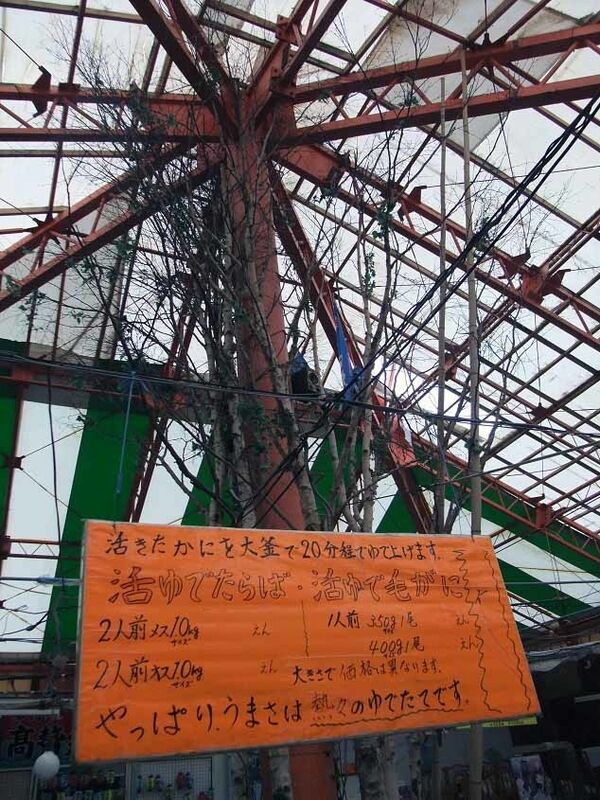 活きたかにを大釜で20分程でゆで上げます。
活ゆでたらば・活ゆで毛がに
2人前メス1.0kgサイズ えん
1人前 350g1尾 えん
400g1尾 えん
2人前オス1.0kgサイズ えん
大きさで価格は異なります。
やっぱり、うまさは熱々のゆでたてです。